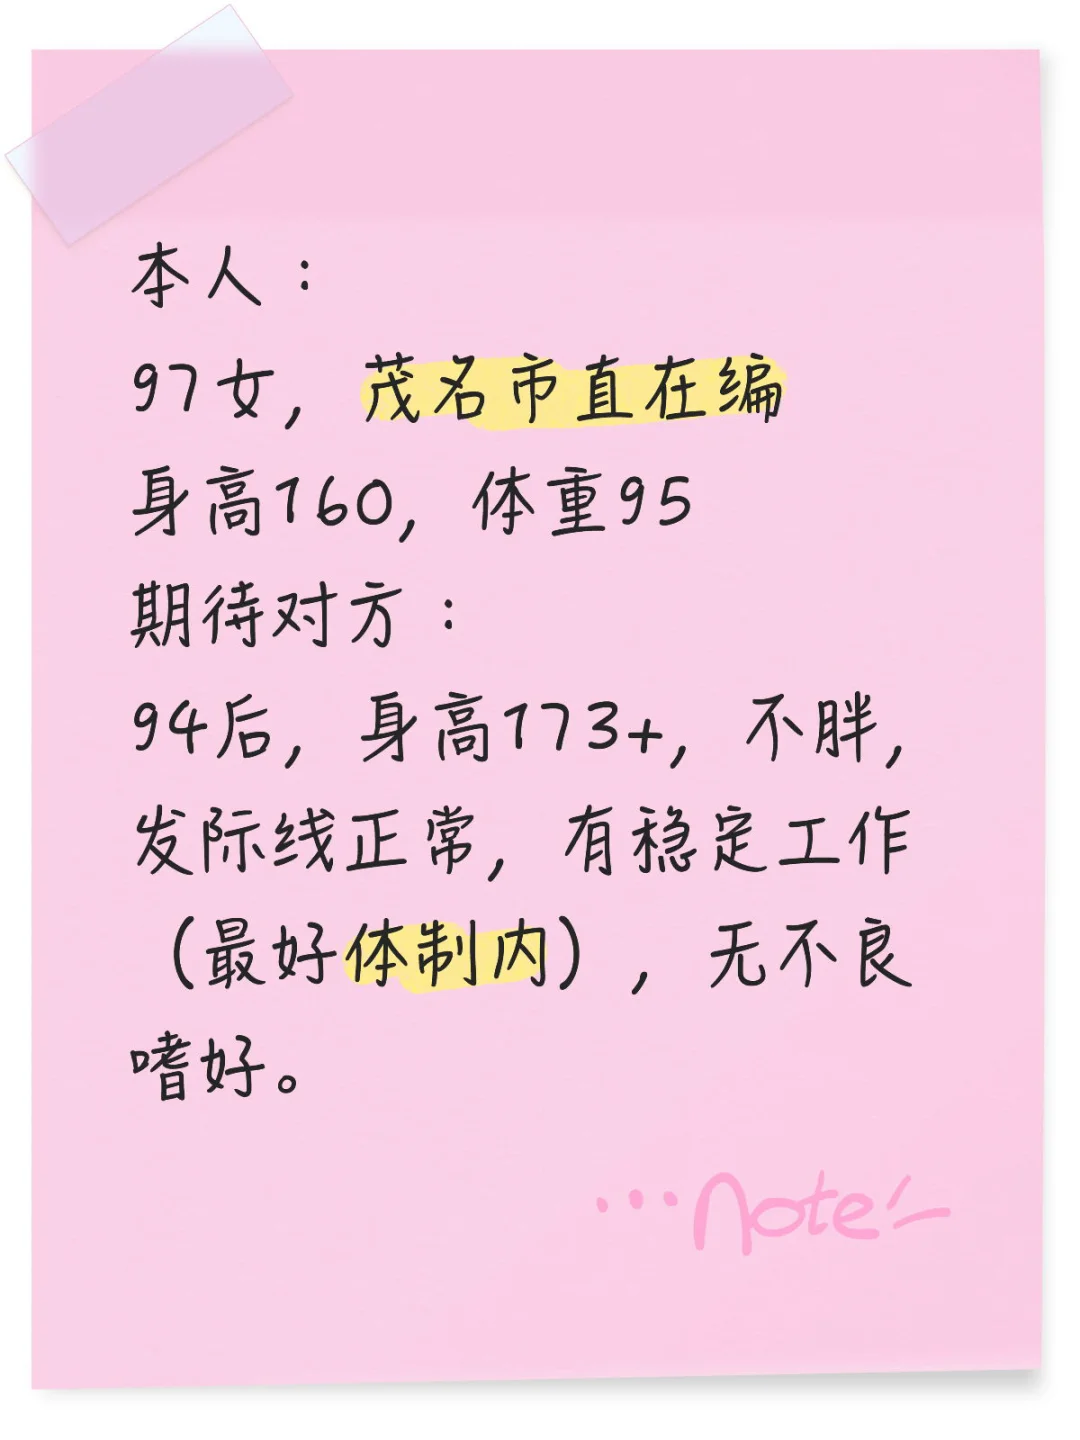 本人：
97女，茂名市直在编
身高160，体重95
期待对方：
94后，身高173+，不胖，
发际线正常，有稳定工作
（最好体制内），无不良
嗜好。
...note